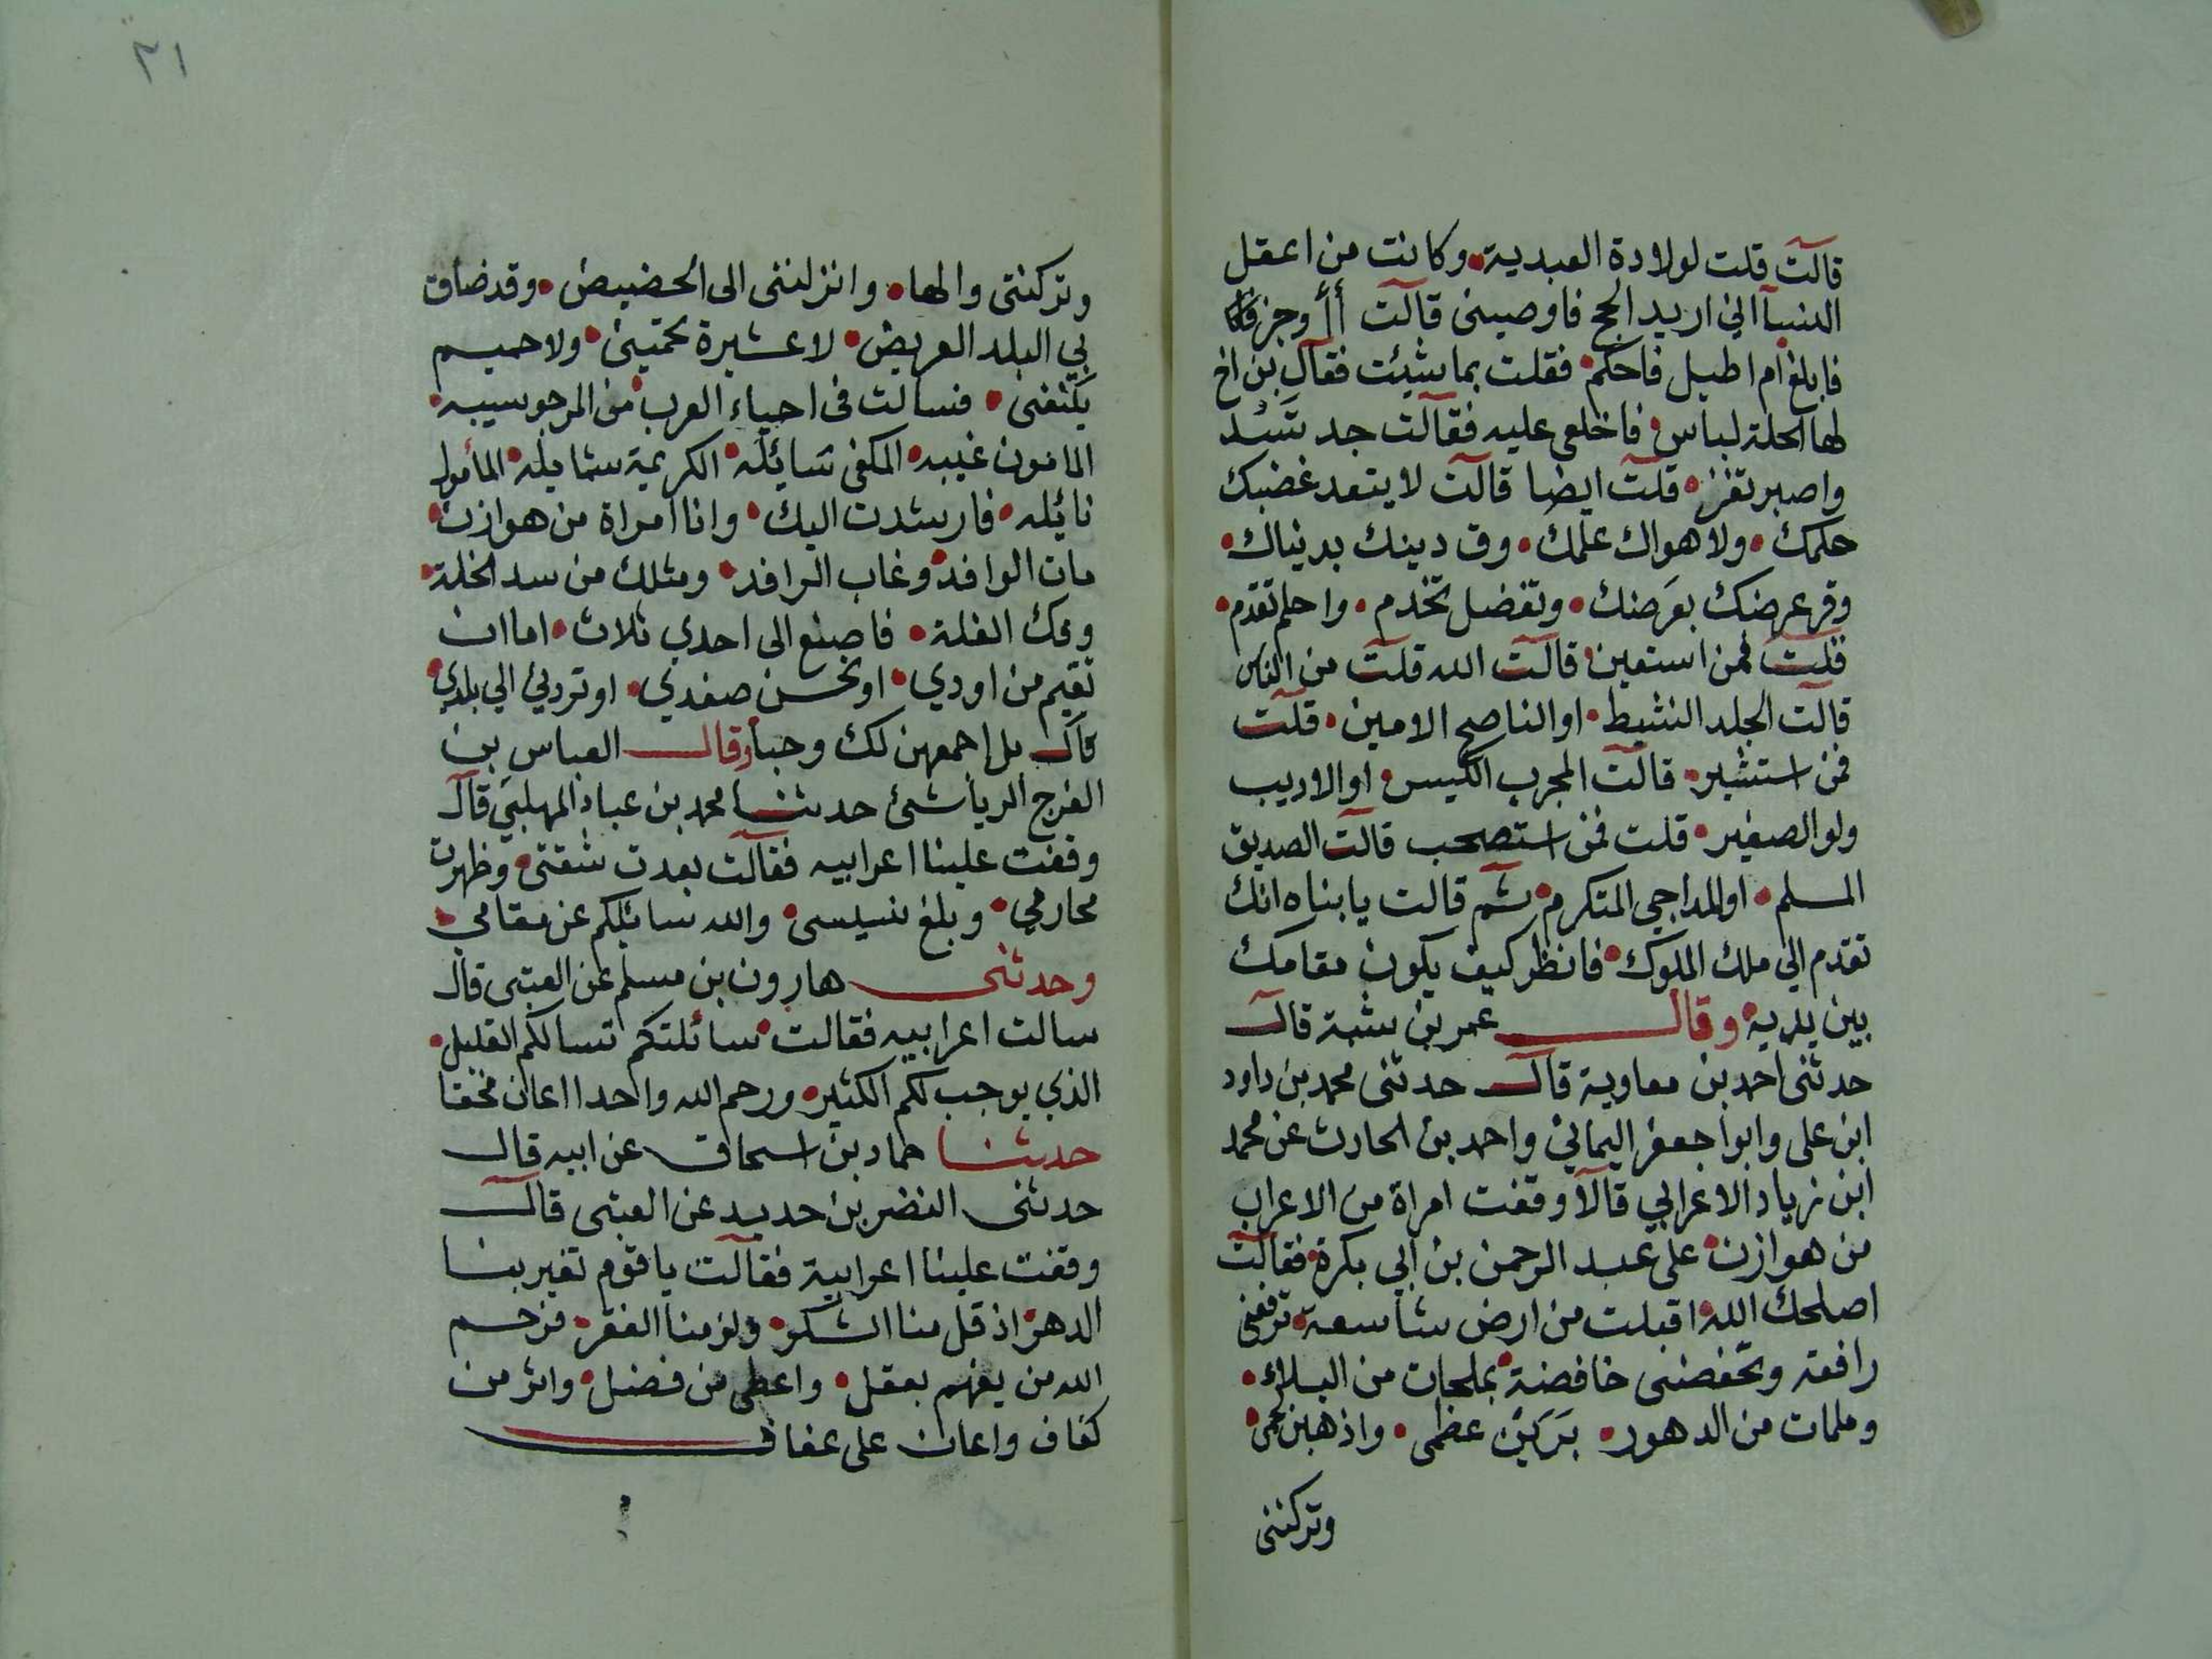 قالت قلت لولادة العبدية • وكانت من اعقل
النسآ اني اريد الحج فاوصيني قالت أأوجز
فابلغ ام اطيل فاحكم • فقلت بما شيئت فقال بن اخ
لها الحلة لباس • فاخلعي عليه فقالت جد تسد
واصبر تفز • قلت ايضا قالت لا يتعد غضبك
حلمك • ولا هواك علمك • وق دينك بدنياك •
وفر عرضك بعرضك • وتفضل تخدم • واحلم تقدم •
قلت فمن استعين • قالت الله قلت من الناس
قالت الجلد النشيط • او الناصح الامين • قلت
فمن استشير • قالت المجرب الكيس • او الاديب
ولو الصغير • قلت فمن استصحب قالت الصديق
المسلم • او المداجي المتكرم • ثم قالت يا بنتاه انك
تقدم الي ملك الملوك • فانظر كيف يكون مقامك
بين يديه • وقال عمر بن شبة قال
حدثني احمد بن معاوية قال حدثني محمد بن داود
ابن علي وابوا جعفر اليماني واحمد بن الحارث عن محمد
ابن زياد الاعرابي قالا وقفت امراة من الاعراب
من هوازن • على عبد الرحمن بن ابي بكرة • فقالت
اصلحك الله • اقبلت من ارض شاسعة • ترفعني
رافعة وتخفضني خافضة • بملحات من البلاء •
وملمات من الدهور • بَرَيْنَ عظمي • واذهبن لحمي •
وتركنني
٣١
وتركنني والها • وانزلنني الى الحضيض • وقد ضاق
بي البلد العريض • لا عشيرة تحميني • ولا حميم
يكنفني • فسالت في احياء العرب • من المرجو سيبه •
المامون غيبه • المكفى سايئله • الكريمة شمايله • المأمول
نائله • فارشدت اليك • وانا امراة من هوازن •
مات الوافد • وغاب الرافد • ومثلك من سد الخلة •
وفك الغلة • فاصنع الى احدي ثلاث • اما ان
تقيم من اودي • او تحسن صفدي • او تردني الي بلدي •
قال بل اجمعهن لك وحبأ وقال العباس بن
الفرج الرياشئ حدثنا محمد بن عباد المهلبي قال
وقفت علينا اعرابيه فقالت بعدت شقتي • وظهرت
محارمي • وبلغ نسيسي • والله سايئلكم عن مقامي •
وحدثني هارون بن مسلم عن العتبى قال
سالت اعرابيه فقالت • سائلتكم تسالكم القليل •
الذي يوجب لكم الكثير • ورحم الله واحدا اعان محقا
حدثنا حماد بن اسحاق عن ابيه قال
حدثني النضر بن حديد عن العتبى قال
وقفت علينا اعرابية فقالت يا قوم تغير بنا
الدهر • اذ قل منا الشكر • ولزمنا الفقر • فرحم
الله من يفهم بعقل • واعطى من فضل • واثر من
كفاف واعان على عفاف